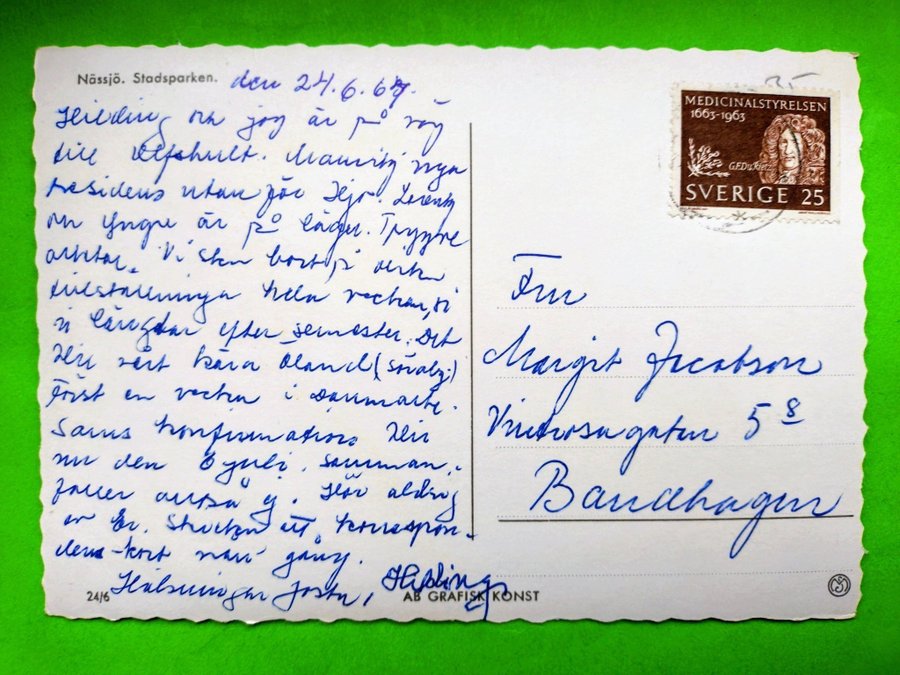 Nässjö. Stadsparken. den 24.6.64.
Hilding och jag är på väg
till Alfshult. Mauritz nya
residens utanför Hjo.
och Yngve är på läger. Trygve
arbetar. Vi sken bort på
hela veckan, så
vi längtar efter semester. Det
blir vårt kära Öland
Först en vecka i Danmark.
konfirmation blir
nu den 6 juli, samman-
faller också ej. Hör aldrig
av Er. Skicka ett korrespon-
dens-kort nån gång.
Hälsningar Hilding
24/6
AB GRAFISK KONST
MEDICINALSTYRELSEN
1663-1963
G.F. Du Rietz
SVERIGE 25
Fru
Margit Jacobson
Vintrosagatan 5 8
Bandhagen